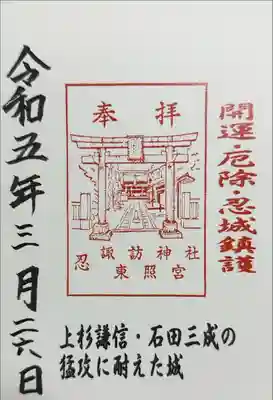 開運・厄除・忍城鎮護
奉拝
忍 諏訪神社
東照宮
令和五年三月二六日
上杉謙信・石田三成の
猛攻に耐えた城